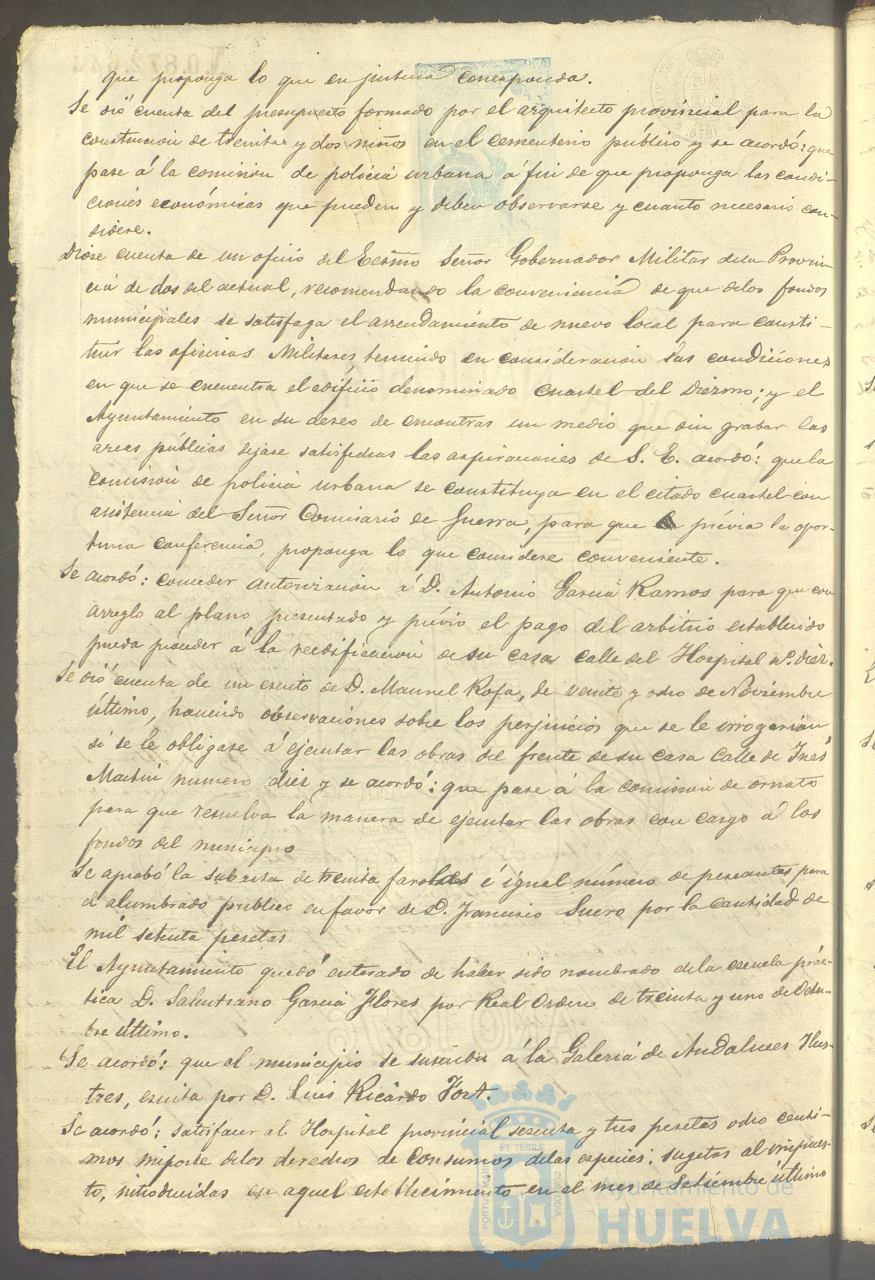 que proponga lo que en justicia corresponda.
Se dió cuenta del presupuesto formado por el arquitecto provincial para la
construccion de treinta y dos niños en el cementerio público y se acordó: que
pase á la comision de policia urbana á fin de que proponga las condi-
ciones económicas que pueden y deben observarse y cuanto necesario con-
sidere.
Dióse cuenta de un oficio del Ecsmo Señor Gobernador Militar dela Provin-
cia de dos del actual, recomendando la conveniencia de que delos fondos
municipales se satisfaga el arrendamiento de nuevo local para consti-
tuir las oficinas Militares, teniendo en consideracion las condiciones
en que se encuentra el edificio denominado cuartel del Diezmo; y el
Ayuntamiento en su deseo de encontrar un medio que sin grabar las
arcas públicas dejase satisfechas las aspiraciones de S. E. acordó: que la
comision de policia urbana se constituya en el citado cuartel con
asistencia del Señor Comisario de Guerra, para que prévia la opor-
tuna conferencia, proponga lo que considere conveniente.
Se acordó: conceder autorizacion á D. Antonio Garcia Ramos para que con
arreglo al plano presentado y prévio el pago del arbitrio establecido
pueda proceder á la reedificacion de su casa calle del Hospital nº diez.
Se dió cuenta de un escrito de D. Manuel Rofa, de veinte y ocho de Noviembre
último, haciendo observaciones sobre los perjuicios que se le irrogarian
si se le obligase á ejecutar las obras del frente de su casa calle de Ines
Martin numero diez y se acordó: que pase á la comision de ornato
para que resuelva la manera de ejecutar las obras con cargo á los
fondos del municipio
Se aprobó la subasta de treinta faroles é igual número de pescantes para
el alumbrado público en favor de D. Francisco Suero por la cantidad de
mil setenta pesetas
El Ayuntamiento quedó enterado de haber sido nombrado dela escuela prác-
tica D. Salustiano Garcia Flores por Real Orden de treinta y uno de Octu-
bre último.
Se acordó: que el municipio se suscriba á la Galeria de Andaluces Ilus-
tres, escrita por D. Luis Ricardo Fort.
Se acordó: satisfacer al Hospital provincial sesenta y tres pesetas ocho centi-
mos importe delos derechos de consumos delas especies, sugetas al impues-
to, introducidas en aquel establecimiento en el mes de Setiembre último
Ayuntamiento de
HUELVA